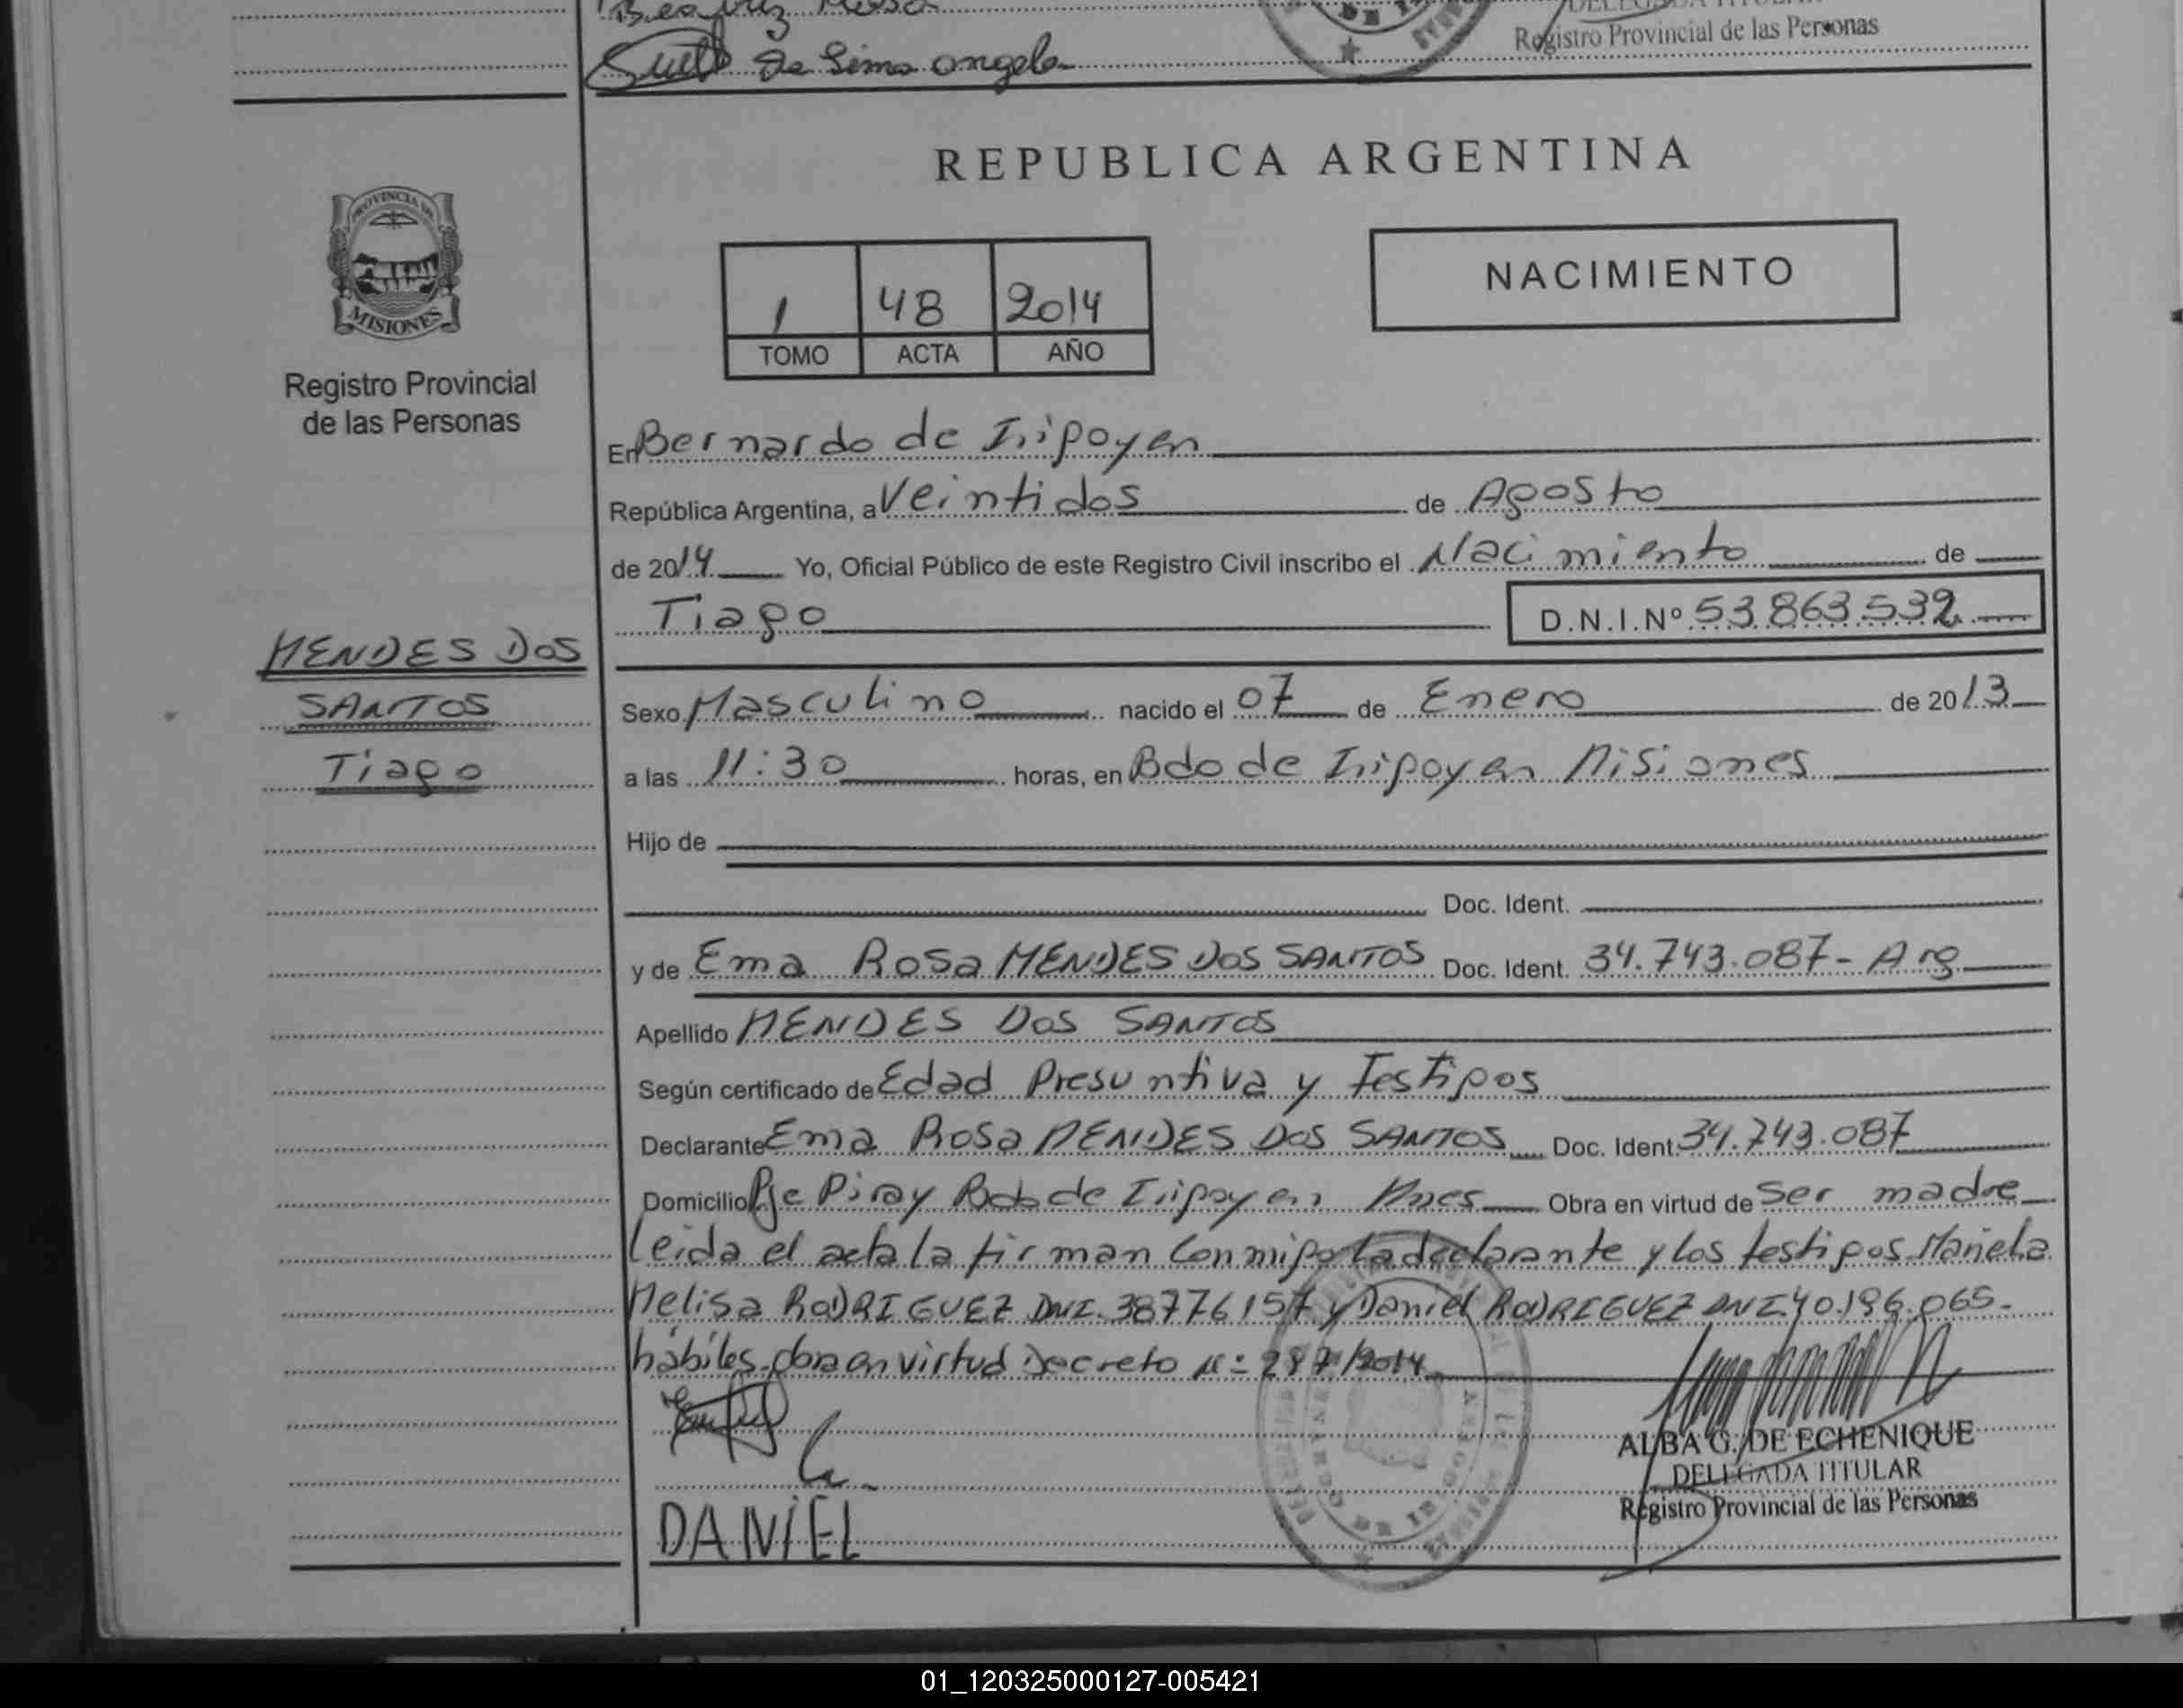 Beatriz Rosa
de Lima Angela
Registro Provincial de las Personas
REPUBLICA ARGENTINA
PROVINCIA DE
MISIONES
Registro Provincial
de las Personas
1 48 2014
TOMO ACTA AÑO
NACIMIENTO
En Bernardo de Irigoyen
República Argentina, a Veintidos de Agosto
de 2014 Yo, Oficial Público de este Registro Civil inscribo el Nacimiento de
Tiago D.N.I.Nº 53.863.532
MENDES DOS
SANTOS
Tiago
Sexo Masculino nacido el 07 de Enero de 2013
a las 11:30 horas, en Bdo de Irigoyen Misiones
Hijo de
Doc. Ident.
y de Ema Rosa MENDES DOS SANTOS Doc. Ident. 34.743.087- Arg
Apellido MENDES DOS SANTOS
Según certificado de Edad Presuntiva y Testigos
Declarante Ema Rosa MENDES DOS SANTOS Doc. Ident. 34.743.087
Domicilio Pje Piray Bdo de Irigoyen Mnes Obra en virtud de Ser madre
Leida el acta la firman Conmigo La declarante y los testigos Mariela
Melisa RODRIGUEZ DNI. 38776157 y Daniel RODRIGUEZ DNI 40.196.065.
hábiles. obra en virtud Decreto Nº 287/2014
ALBA G. DE ECHENIQUE
DELEGADA TITULAR
Registro Provincial de las Personas
DANIEL
01_120325000127-005421